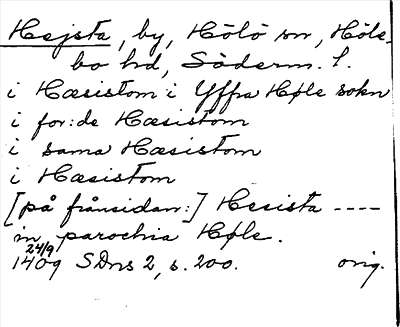 Hejsta, by, Hölö sn, Höle-
bo hd, Söderm. l.
i Hæsistom i Yffra Høle sokn
i for:de Hæsistom
i sama Hæsistom
i Hæsistom
[på frånsidan:] Hesista ----
in parochia Høle.
24/9
1409 SDns 2, s. 200. orig.